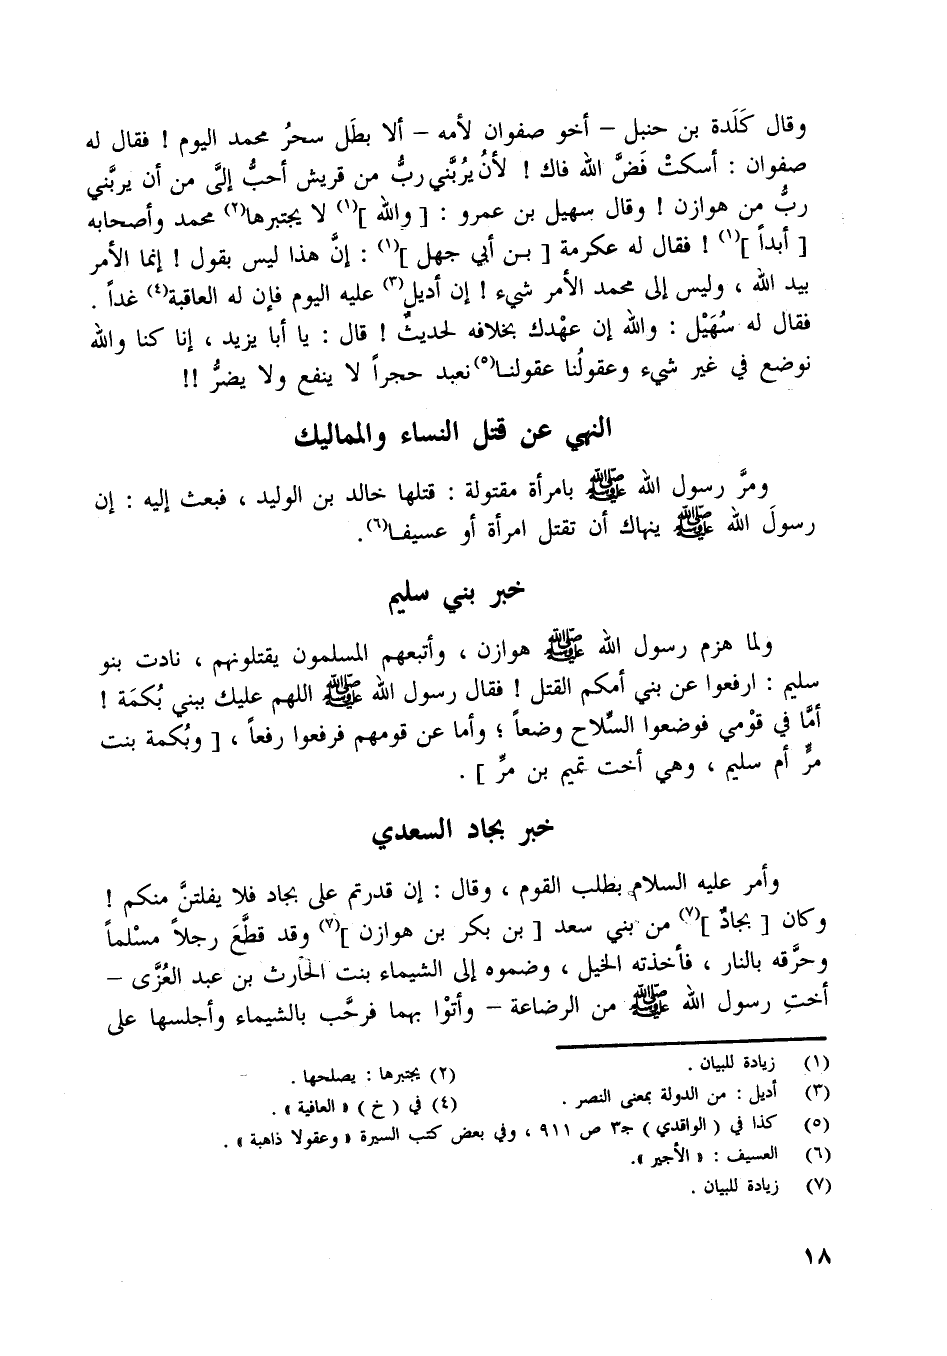 وقال كَلَدة بن حنبل – أخو صفوان لأمه – ألا بطَل سحرُ محمد اليوم ! فقال له
صفوان : أسكتْ فَضَّ الله فاك ! لأنْ يُربَّني ربُّ من قريش أحبُّ إليَّ من أن يربَّني
ربُّ من هوازن ! وقال سهيل بن عمرو : [ والله ]⁽١⁾ لا يجتبرها⁽٢⁾ محمد وأصحابه
[ أبداً ]⁽١⁾ ! فقال له عكرمة [ بن أبي جهل ]⁽١⁾ : إنَّ هذا ليس بقول ! إنما الأمر
بيد الله ، وليس إلى محمد الأمر شيء ! إن أديل⁽٣⁾ عليه اليوم فإن له العاقبة⁽٤⁾ غداً .
فقال له سُهَيْل : والله إن عهْدك بخلافه لحديثٌ ! قال : يا أبا يزيد ، إنا كنا والله
نوضع في غير شيء وعقولُنا عقولنا⁽٥⁾ نعبد حجراً لا ينفع ولا يضرُّ !!
النهي عن قتل النساء والمماليك
ومرَّ رسول الله ﷺ بامرأة مقتولة : قتلها خالد بن الوليد ، فبعث إليه : إن
رسولَ الله ﷺ ينهاك أن تقتل امرأة أو عسيفا⁽٦⁾ .
خبر بني سليم
ولما هزم رسول الله ﷺ هوازن ، وأتبعهم المسلمون يقتلونهم ، نادت بنو
سليم : ارفعوا عن بني أمكم القتل ! فقال رسول الله ﷺ اللهم عليك ببني بُكمَة !
أمَّا في قوْمي فوضعوا السِّلاح وضعاً ؛ وأما عن قومهم فرفعوا رفعاً ، [ وبُكمة بنت
مرٍّ أم سليم ، وهي أخت تميم بن مرِّ ] .
خبر بجاد السعدي
وأمر عليه السلام بطلب القوم ، وقال : إن قدرتم على بجاد فلا يفلتنَّ منكم !
وكان [ بجادٌ ]⁽٧⁾ من بني سعد [ بن بكر بن هوازن ]⁽٧⁾ وقد قطَّعَ رجلاً مسْلماً
وحرَّقه بالنار ، فأخذته الخيل ، وضموه إلى الشيماء بنت الحارث بن عبد العُزَّى –
أختِ رسول الله ﷺ من الرضاعة – وأتوْا بهما فرحَّب بالشيماء وأجلسها على
(١) زيادة للبيان . (٢) يجتبرها : يصلحها .
(٣) أديل : من الدولة بمعنى النصر . (٤) في ( خ ) « العافية » .
(٥) كذا في ( الواقدي ) جـ٣ ص ٩١١ ، وفي بعض كتب السيرة « وعقولا ذاهبة » .
(٦) العسيف : « الأجير ».
(٧) زيادة للبيان .
١٨